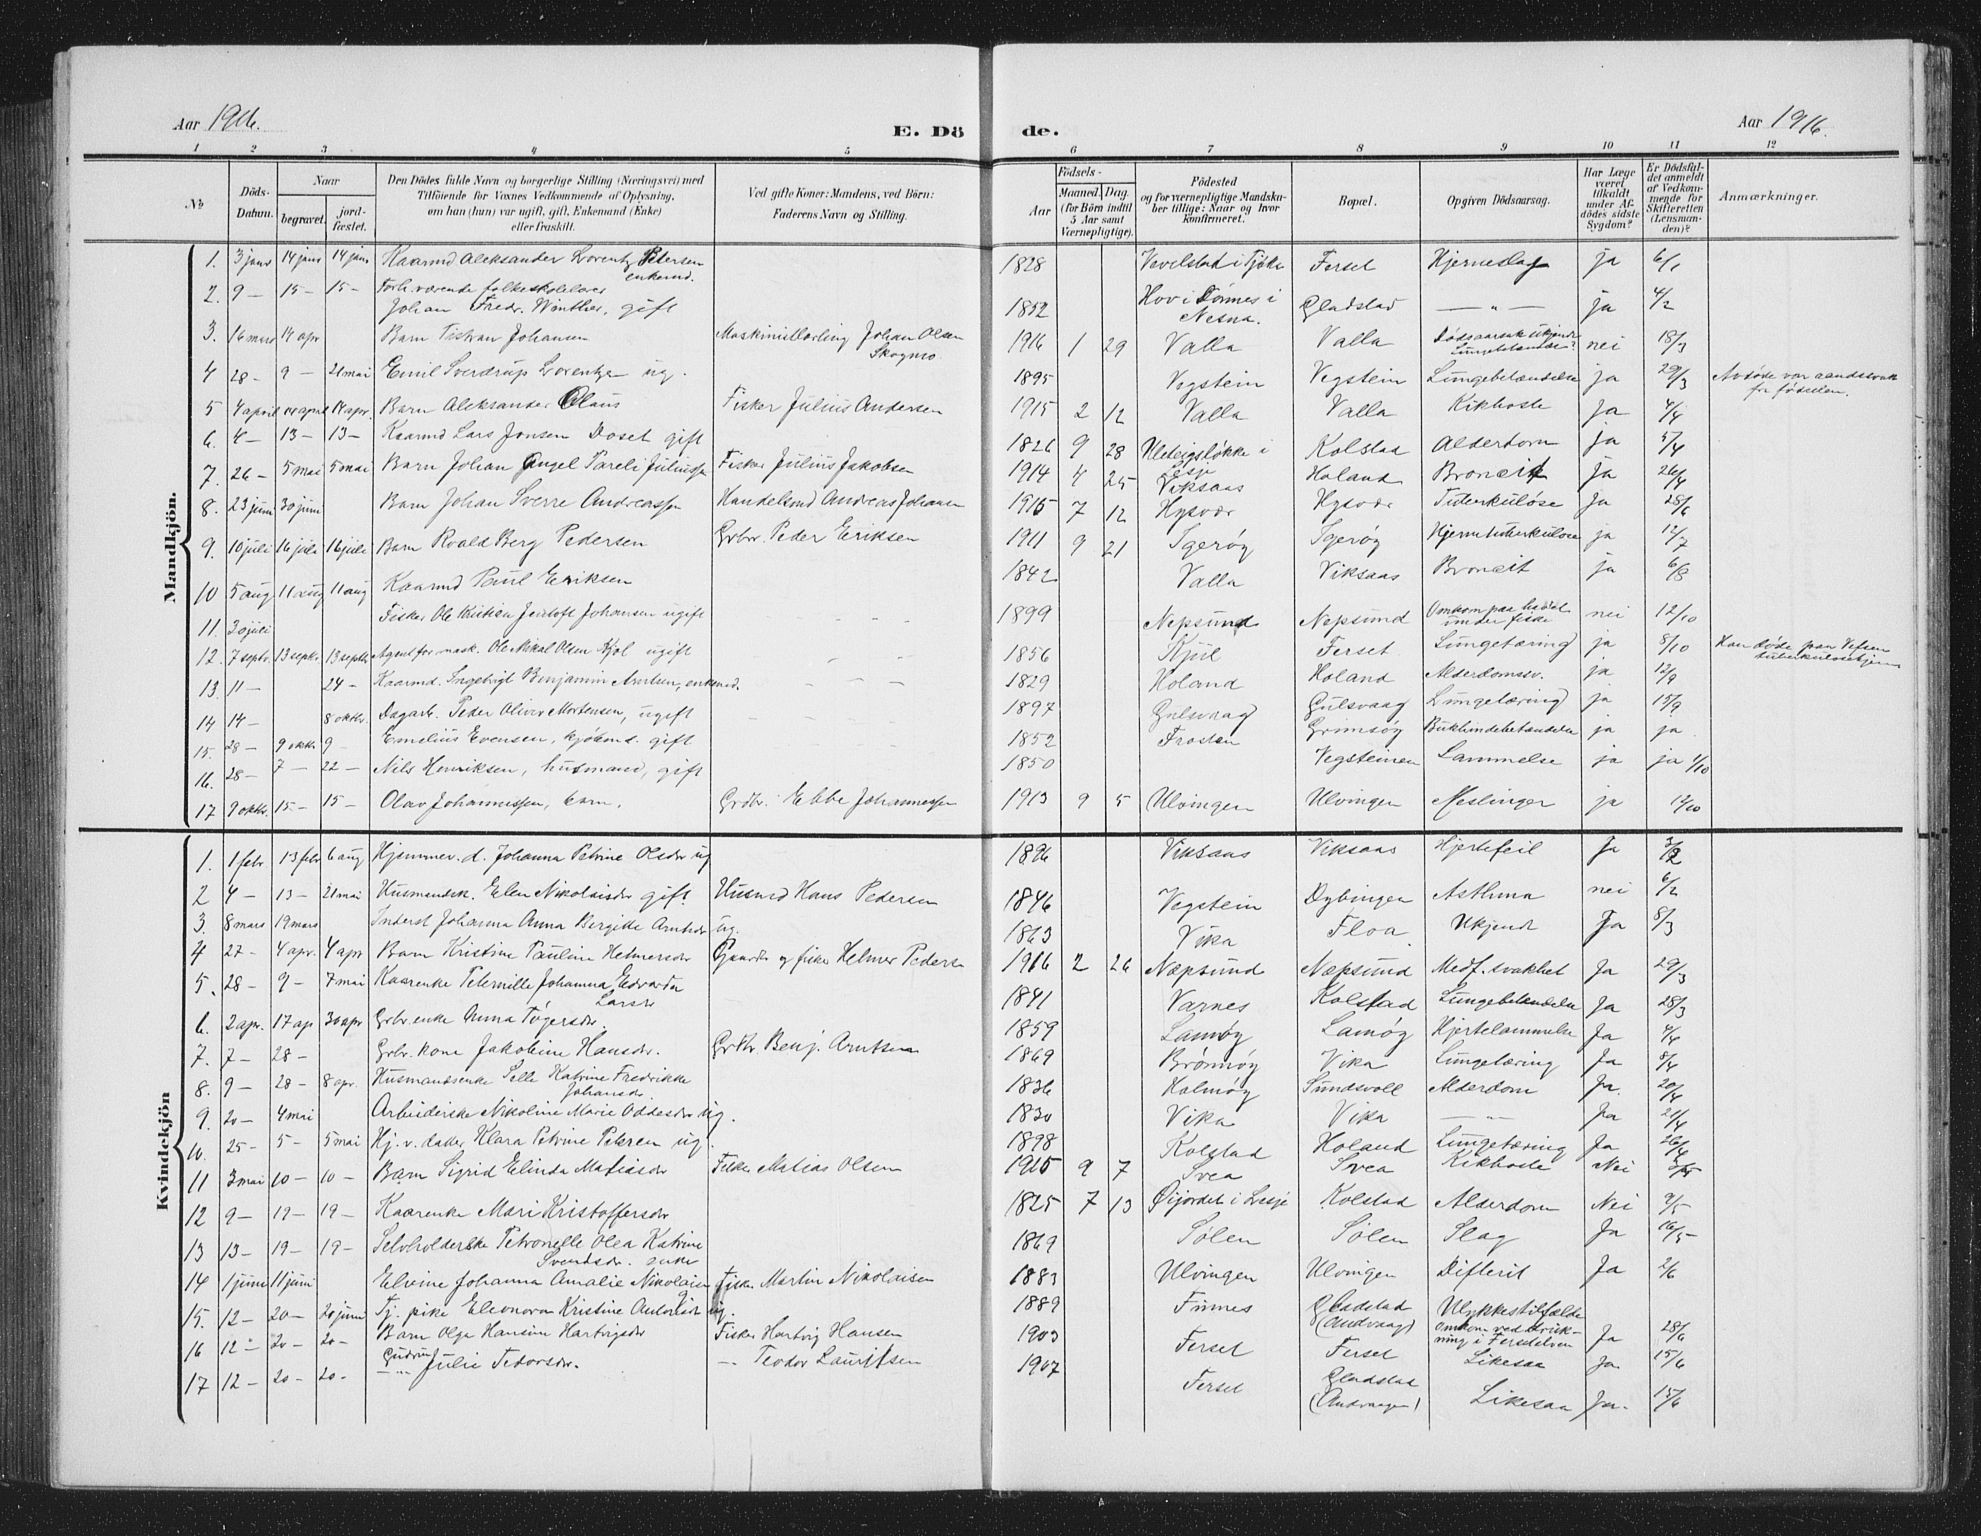 Aar 1916.
E. Dö
de.
Aar 1916.
1 2 3 4 5 6 7 8 9 10 11 12
No
Döds-Datum.
Naar
begravet.
jordfæstet.
Den Dödes fulde Navn og borgerlige Stilling (Næringsvei) med Tilföiende for Voxnes Vedkommende af Oplysning, om han (hun) var ugift, gift, Enkemand (Enke) eller fraskilt.
Ved gifte Koner: Mandens, ved Börn: Faderens Navn og Stilling.
Födsels-
Aar
Maaned. Dag.
(for Börn indtil 5 Aar samt Værnepligtige).
Födested og for værnepligtige Mandskaber tillige: Naar og hvor konfirmeret.
Bopæl.
Opgiven Dödsaarsag.
Har Læge været tilkaldt under Afdödes sidste Sygdom?
Er Dödsfaldet anmeldt af Vedkommende for Skifteretten (Lensmanden)?
Anmærkninger.
Mandkjön.
1. 3 janr 14 janr 14 janr Kaarmd Aleksander Lorentz Petersen enkemd. 1828 Vevelstad i Tjøtta Forset Hjerneslag ja 6/1
2. 9 — 15 — 15 — Forh.værende folkeskolelærer Johan Fredr. Winther, gift 1852 Hov i Dønnes i Nesna. Gladstad — " — ja 4/2
3. 16 mars 14 apr Barn Tistran Johansen Maskinistlærling Johan Olsen Skogmo 1916 1 29 Valla Valla Dødsaarsak ukjendt Lungebetændelse? nei 18/3
4 28 - 9 — 21 mai Emil Sverdrup Lorentzen ug. 1895 Vegstein Vegstein Lungebetændelse ja 29/3 Avdøde var aandssvak fra fødselen.
5 4 april 14 april 14 apr. Barn Aleksander Claus Fisker Julius Andersen 1915 2 12 Valla Valla Kikhoste Ja 4/4
6. 4 — 13 — 13 — Kaarmd Lars Jonsen Doset gift 1826 9 28 Uleteigsløkke i Lesje Kolstad Alderdom ja 5/4
7. 26 — 5 mai 5 mai Barn Johan Angel Pareli Juliussen Fisker Julius Jakobsen 1914 4 25 Viksaas Holand Bronkit ja 26/4
8. 23 juni 30 juni Barn Johan Sverre Andreassen Handelsmd Andreas Johansen 1915 7 12 Hysvær Hysvær Tuberkuløse Ja 28/6
9. 10 juli 16 juli 16 juli Barn Roald Berg Pedersen Grbr. Peder Eriksen 1911 9 21 Igerøy Igerøy Hjernetuberkulose ja 12/7
10 5 aug 11 aug 11 aug Kaarmd Paul Eriksen 1842 Valla Viksaas Bronkit ja 6/8
11. 30 juli Fisker Ole Kristian Jentoft Johansen ugift 1899 Nepsund Nepsund Omkom paa havet under fiske nei 12/10
12. 7 septr. 13 septr. 13 septbr Agent for mask. Ole Nikal Olsen Kjøl ugift 1856 Kjul Forset Lungetæring ja 8/10 Han døde paa Vefsen tuberkulosehjem
13. 11 — 24 — Kaarmd. Ingebrigt Benjamin Arntsen, enkemd. 1829 Holand Holand Alderdomssv. ja 12/9
14 14 — 8 oktbr. Dagarb. Peder Oliver Mortensen, ugift 1897 Gulsvaag Gulsvaag Lungetæring ja 15/9
15. 28 — 9 oktbr 9 — Emelius Evensen, kjøbmd. gift 1852 Frosten Grimsøy Bukhindebetændelse ja ja
16. 28 — 7 — 22 — Nils Henriksen, husmand, gift 1850 Vegsteinen Lammelse ja ja 1/10
17 9 oktbr. 15 — 15 — Olav Johannessen, barn. Grdbr. Ebbe Johannessen 1913 9 5 Ulvingen Ulvingen Meslinger ja 12/10
Kvindekjön
1. 1 febr 13 febr 6 aug Hjemmev. d. Johanna Petrine Olsdr ug 1896 Viksaas Viksaas Hjertefeil Ja 3/2
2 4 — 13 — 21 mai Husmandsk. Elen Nikolaisdr gift Husmd Hans Pedersen 1846 Vegstein Dybingen Asthma nei 6/2
3. 8 mars 19 mars Inderst Johanna Anna Bergitte Arntsdr ug. 1863 Vika Floa Ukjendt Ja 8/3
4 27 - 4 apr. 4 apr Barn Kristine Pauline Helmersdr Gaardbr og fisker Helmer Peders 1916 2 26 Næpsund Næpsund Medf. svakhet Ja 29/3
5. 28 — 9 — 7 mai Kaarenke Peternille Johanna Edvarda Larsdr 1841 Varnes Kolstad Lungebetændelse Ja 28/3
6. 2 apr. 17 ap 30 apr Grbr. enke Anna Tøgersdr. 1859 Lamøy Lamøy Hjertelammelse Ja 4/4
7. 7 — 28 — Grbr. kone Jakobine Hansdr. Grbr Benj. Arntsen 1869 Brønnøy Vika Lungetæring Ja 8/4
8. 9 — 28 — 8 apr. Husmandsenke Selle Katrine Fredrikke Johansdr. 1836 Halmøy Sundsvoll Alderdom Ja. 20/4
9. 20 — 4 mai Arbeiderske Nikoline Marie Oddesdr ug. 1830 Vika Vika — " — Ja 21/4
10. 25 — 5 — 5 mai Hj. v. datter Klara Petrine Petersen ug. 1898 Kolstad Holand Lungetæring Ja 26/4
11 3 mai 10 — 10 — Barn Sigrid Elinda Matiasdr Fisker Matias Olsen 1915 9 7 Svea Svea Kikhoste Nei 3/5
12 9 — 19 — 19 — Kaarenke Mari Kristoffersdr 1825 7 13 Øijordet i Lesje Kolstad Alderdom Nei 9/5
13 13 — 19 — 19 — Selvholderske Petronelle Olea Katrine Svendsdr. enke 1869 Sølen Sølen Slag Ja 16/5
14 1 juni 11 juni Elvine Johanna Amalie Nikolaisen Fisker Martin Nikolaisen 1883 Ulvingen Ulvingen Difterit Ja 2/6
15. 12 — 20 — 20 juni Tj. pike Eleonora Kristine Antonisdr ug. 1889 Finnes Gladstad (Andvaag) Ulykkestilfælde omkom ved drukning i Forsetelven Ja 28/6
16 12 " 20 — 20 — Barn Olga Hansine Hartvigsdr Fisker Hartvig Hansen 1903 Forset Forset Likesaa Ja. 15/6
17 12 — 20 - 20 - — " — Gudrun Julie Teodorsdr. — Teodor Lauritsen 1907 Forset Gladstad (Andvaagen) Likesaa Ja. 15/6